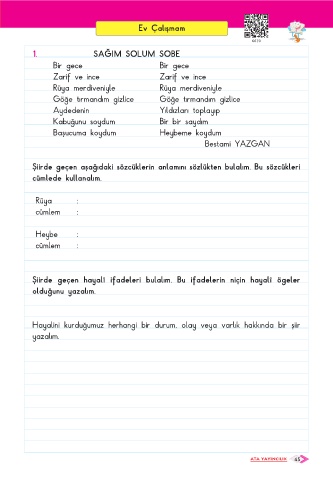 Ev Çalışmam
1. SAĞIM SOLUM SOBE
Bir gece
Zarif ve ince
Rüya merdiveniyle
Göğe tırmandım gizlice
Aydedenin
Kabuğunu soydum
Başucuma koydum
Bir gece
Zarif ve ince
Rüya merdiveniyle
Göğe tırmandım gizlice
Yıldızları toplayıp
Bir bir saydım
Heybeme koydum
Bestami YAZGAN
Şiirde geçen aşağıdaki sözcüklerin anlamını sözlükten bulalım. Bu sözcükleri
cümlede kullanalım.
Rüya :
cümlem :
Heybe :
cümlem :
Şiirde geçen hayalî ifadeleri bulalım. Bu ifadelerin niçin hayalî ögeler
olduğunu yazalım.
Hayalini kurduğumuz herhangi bir durum, olay veya varlık hakkında bir şiir
yazalım.
ATA YAYINCILIK 45